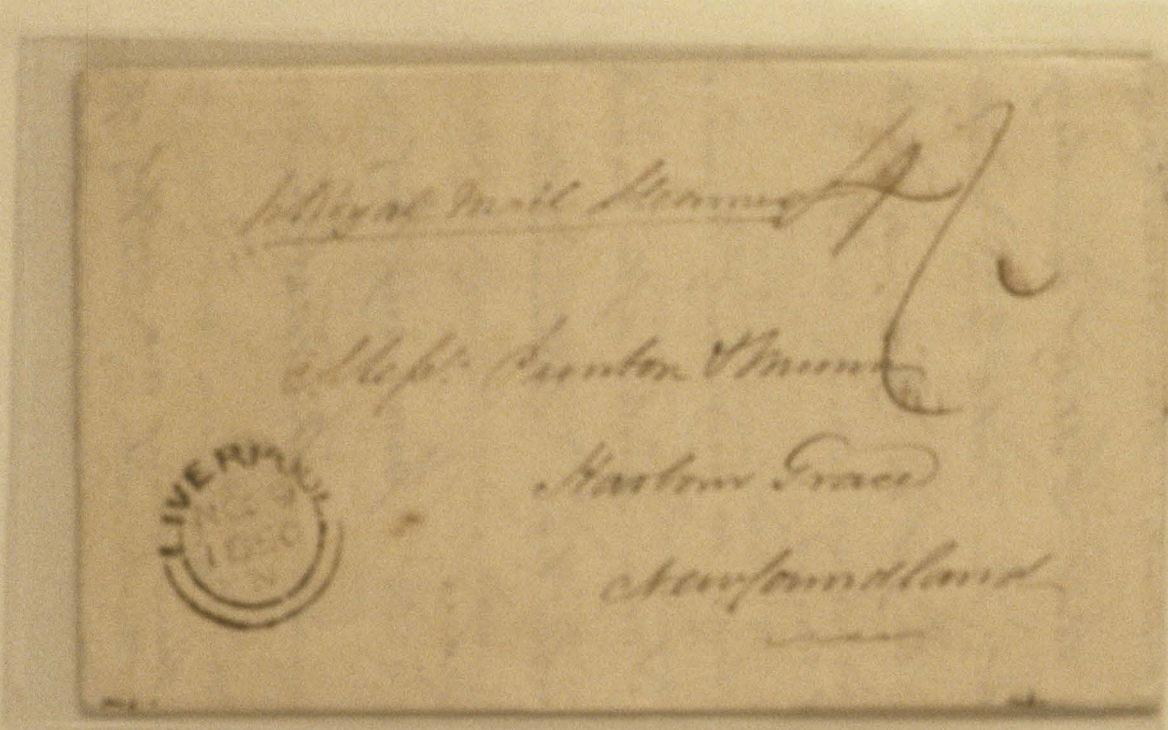 p Royal Mail Steamer
Messrs. Punton & Munn
Harbour Grace
Newfoundland
LIVERPOOL